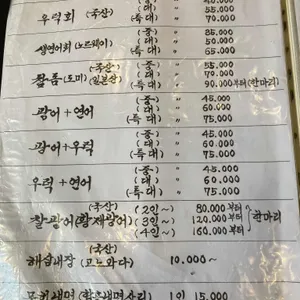 우럭회 (국산) (대) 〃 55.000
(특대) 〃 70.000
생연어회 (노르웨이) (중) 〃 35.000
(대) 〃 50.000
(특대) 〃 65.000
(국산) (중) 〃 55.000
참돔 (도미) (일본산) (대) 〃 70.000
(특대) 〃 90.000부터 (한마리)
(중) 〃 45.000
광어 + 연어 (대) 〃 60.000
(특대) 〃 75.000
(중) 〃 45.000
광어 + 우럭 (대) 〃 60.000
(특대) 〃 75.000
(중) 〃 45.000
우럭 + 연어 (대) 〃 60.000
(특대) 〃 75.000
(국산) (2인~) 80.000부터
찰광어 (황제광어) (3인~) 120.000부터 (한마리)
(4인~) 160.000부터
(국산)
해삼내장 (고노와다) 10.000~
1인 15.000